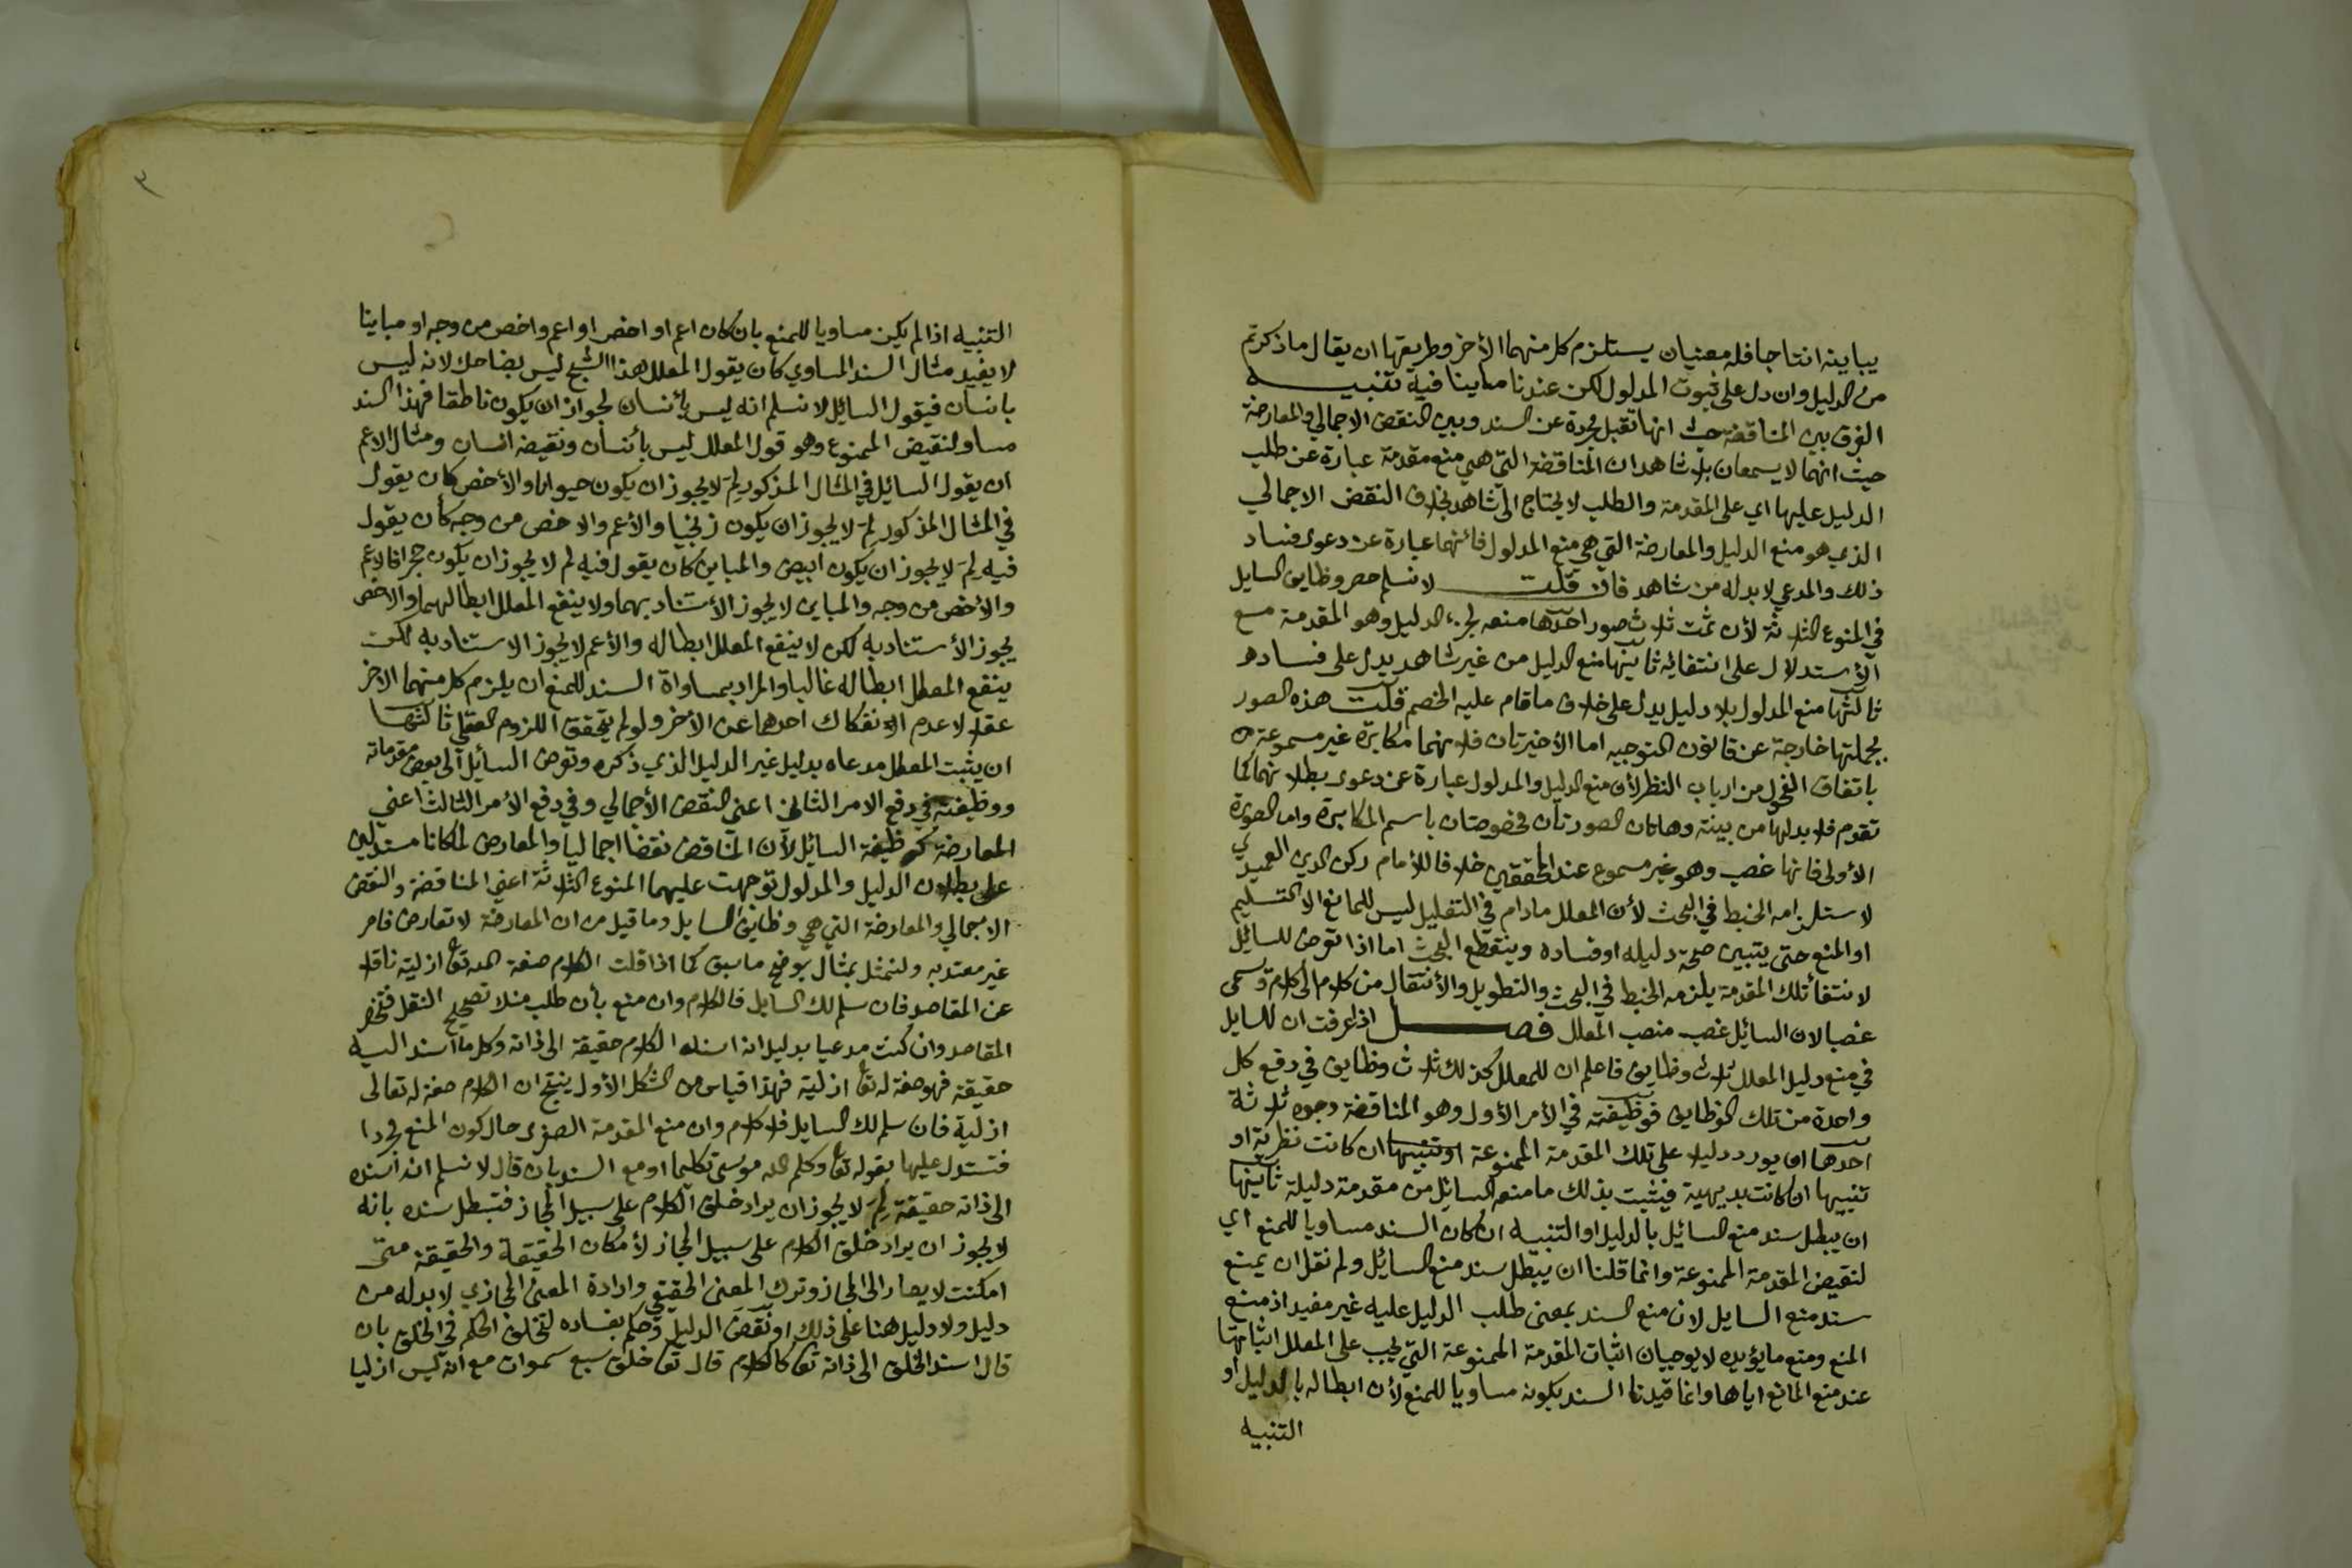 يباينه انتاجا فله معنيان يستلزم كل منهما الأخر وطريقها ان يقال ما ذكرتم
من الدليل وان دل على ثبوت المدلول لكن عندنا ما ينافيه تنبيه
الفرق بين المناقضة حيث انها تقبل مجردة عن السند وبين النقض الاجمالي والمعارضة
حيث انهما لا يسمعان بلا شاهد ان المناقضة التي هي منع مقدمة عبارة عن طلب
الدليل عليها اي على المقدمة والطلب لا يحتاج الى شاهد بخلاف النقض الاجمالي
الذي هو منع الدليل والمعارضة التي هي منع المدلول فأنهما عبارة عن دعوى فساد
ذلك والمدعي لا بد له من شاهد فان قلت لا نسلم حصر وظايف السايل
في المنوع الثلاثة لأن ثمت ثلاث صور احدها منعه لجزء الدليل وهو المقدمة مع
الأستدلال على انتفائه ثانيها منع الدليل من غير شاهد يدل على فساده
ثالثها منع المدلول بلا دليل يدل على خلاف ما قام عليه الخصم قلت هذه الصور
بجملتها خارجة عن قانون التوجيه اما الأخيرتان فلانهما مكابرة غير مسموعة
باتفاق الفحول من ارباب النظر لأن منع الدليل والمدلول عبارة عن دعوى بطلانهما كما
تقدم فلا بد لها من بينة وهاتان الصورتان مخصوصتان باسم المكابرة واما الصورة
الأولى فانها غصب وهو غير مسموع عند المحققين خلافا للأمام ركن الدين العميدي
لاستلزامه الخبط في البحث لأن المعلل مادام في التعليل ليس للمانع الا التسليم
او المنع حتى يتبين صحة دليله او فساده وينقطع البحث اما اذا تعرض للسائل
لانتفأ تلك المقدمة يلزمه الخبط في البحث والتطويل والأنتقال من كلام الى كلام وسمى
غصبا لان السائل غصب منصب المعلل فصل اذا عرفت ان للسايل
في منع دليل المعلل ثلاث وظايف فاعلم ان للمعلل كذلك ثلاث وظايف في دفع كل
واحدة من تلك الوظايف فوظيفته في الأمر الأول وهو المناقضة وجوه ثلاثة
احدها ان يورد دليلا على تلك المقدمة الممنوعة ان كانت نظرية او
تنبيها ان كانت بديهية فيثبت بذلك ما منعه السائل من مقدمة دليله ثانيها
ان يبطل سند منع السائل بالدليل او التنبيه ان كان السند مساويا للمنع اي
لنقيض المقدمة الممنوعة وانما قلنا ان يبطل سند منع السائل ولم نقل ان يمنع
سند منع السايل لان منع السند بمعنى طلب الدليل عليه غير مفيد اذ منع
المنع ومنع ما يؤيده لا يوجبان اثبات المقدمة الممنوعة التي يجب على المعلل اثباتها
عند منع المانع اياها وانما قيدنا السند بكونه مساويا للمنع لأن ابطاله بالدليل او
التنبيه
٣
التنبيه اذا لم يكن مساويا للمنع بان كان اعم او اخص او اعم واخص من وجه او مباينا
لا يفيد مثال السند المساوي كان يقول المعلل هذا الشبح ليس بضاحك لانه ليس
بانسان فيقول السائل لا نسلم انه ليس بأنسان لجواز ان يكون ناطقا فهذا السند
مساو لنقيض الممنوع وهو قول المعلل ليس بأنسان ونقيضه انسان ومثال الاعم
ان يقول السائل في المثال المذكور لم لا يجوز ان يكون حيوانا والأخص كان يقول
في المثال المذكور لم لا يجوز ان يكون زنجيا والأعم والاخص من وجه كأن يقول
فيه لم لا يجوز ان يكون ابيض والمباين كان يقول فيه لم لا يجوز ان يكون حجرا فالاعم
والأخص من وجه والمباين لا يجوز الأستناد بهما ولا ينفع المعلل ابطالهما والاخص
يجوز الأستناد به لكن لا ينفع المعلل ابطاله والأعم لا يجوز الاستناد به لكن
ينفع المعطل ابطاله غالبا والمراد بمساواة السند للمنع ان يلزم كل منهما الاخر
عقلا لا عدم الأنفكاك احدهما عن الأخر ولو لم يتحقق اللزوم العقلي ثالثها
ان يثبت المعطل مدعاه بدليل غير الدليل الذي ذكره وتعرض السائل الى بعض مقدماته
ووظيفته في دفع الامر الثاني اعني النقض الأجمالي وفي دفع الأمر الثالث اعني
المعارضة كوظيفة السائل لأن المناقض نقضا اجماليا والمعارض لما كانا مستدلين
على بطلان الدليل والمدلول توجهت عليهما المنوع الثلاثة اعني المناقضة والنقض
الاجمالي والمعارضة التي هي وظايف السايل وما قيل من ان المعارضة لا تعارض فامر
غير معتد به ولنمثل بمثال يوضح ما سبق كما اذا قلت الكلام صفة لله تعا ازلية ناقلا
عن المقاصد فان سلم لك السايل فالكلام وان منع بأن طلب منك تصحيح النقل فتحضر
المقاصد وان كنت مدعيا بدليل انه اسناد الكلام حقيقة الى ذاته وكل ما اسند اليه
حقيقة فهو صفة له تعا ازلية فهذا قياس من الشكل الأول ينتج ان الكلام صفة له تعالى
ازلية فان سلم لك السايل فلا كلام وان منع المقدمة الصغرى حال كون المنع مجردا
فتستدل عليها بقوله تعا وكلم الله موسى تكليما او مع السند بان قال لا نسلم انه اسنده
الى ذاته حقيقة لم لا يجوز ان يراد خلق الكلام على سبيل المجاز فتبطل سنده بانه
لا يجوز ان يراد خلق الكلام على سبيل المجاز لأمكان الحقيقة والحقيقة متى
امكنت لا يصار الى المجاز وترك المعنى الحقيقي وارادة المعنى المجازي لا بد له من
دليل ولا دليل هنا على ذلك او نقض الدليل وحكم بفساده لتخلف الحكم في الخلق بان
قال اسند الخلق الى ذاته تعا كالكلام قال تعا خلق سبع سموات مع انه ليس ازليا